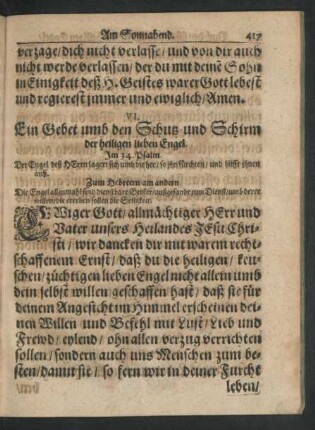 Am Sonnabend. 417
verzage/dich nicht verlasse/und von dir auch
nicht werde verlassen/der du mit deinẽ Sohn
in Einigkeit deß H. Geistes warer Gott lebest
und regierest jmmer und ewiglich/Amen.
VI.
Ein Gebet umb den Schutz und Schirm
der heiligen lieben Engel.
Im 34. Psalm.
Der Engel deß HErrn lagert sich umb die her/so jhn fürchten/und hilfft ihnen
auß.
Zum Hebreern am andern.
Die Engel allzumahl sind dienstbare Geister/außgesandt zum Dienst/umb derer
willen/die ererben sollen die Seligkeit.
EWiger Gott/allmächtiger HErr und
Vater unsers Heilandes Jesu Chri-
sti/wir dancken dir mit warem recht-
schaffenem Ernst/daß du die heiligen/keu-
schen/züchtigen lieben Engel nicht allein umb
dein selbst willen geschaffen hast/daß sie für
deinem Angesicht im Himmel erscheinen dei-
nen Willen und Befehl mit Lust/Lieb und
Frewd/eylend/ohn allen verzug verrichten
sollen/sondern auch uns Menschen zum be-
sten/damit sie/so fern wir in deiner Furcht
leben/